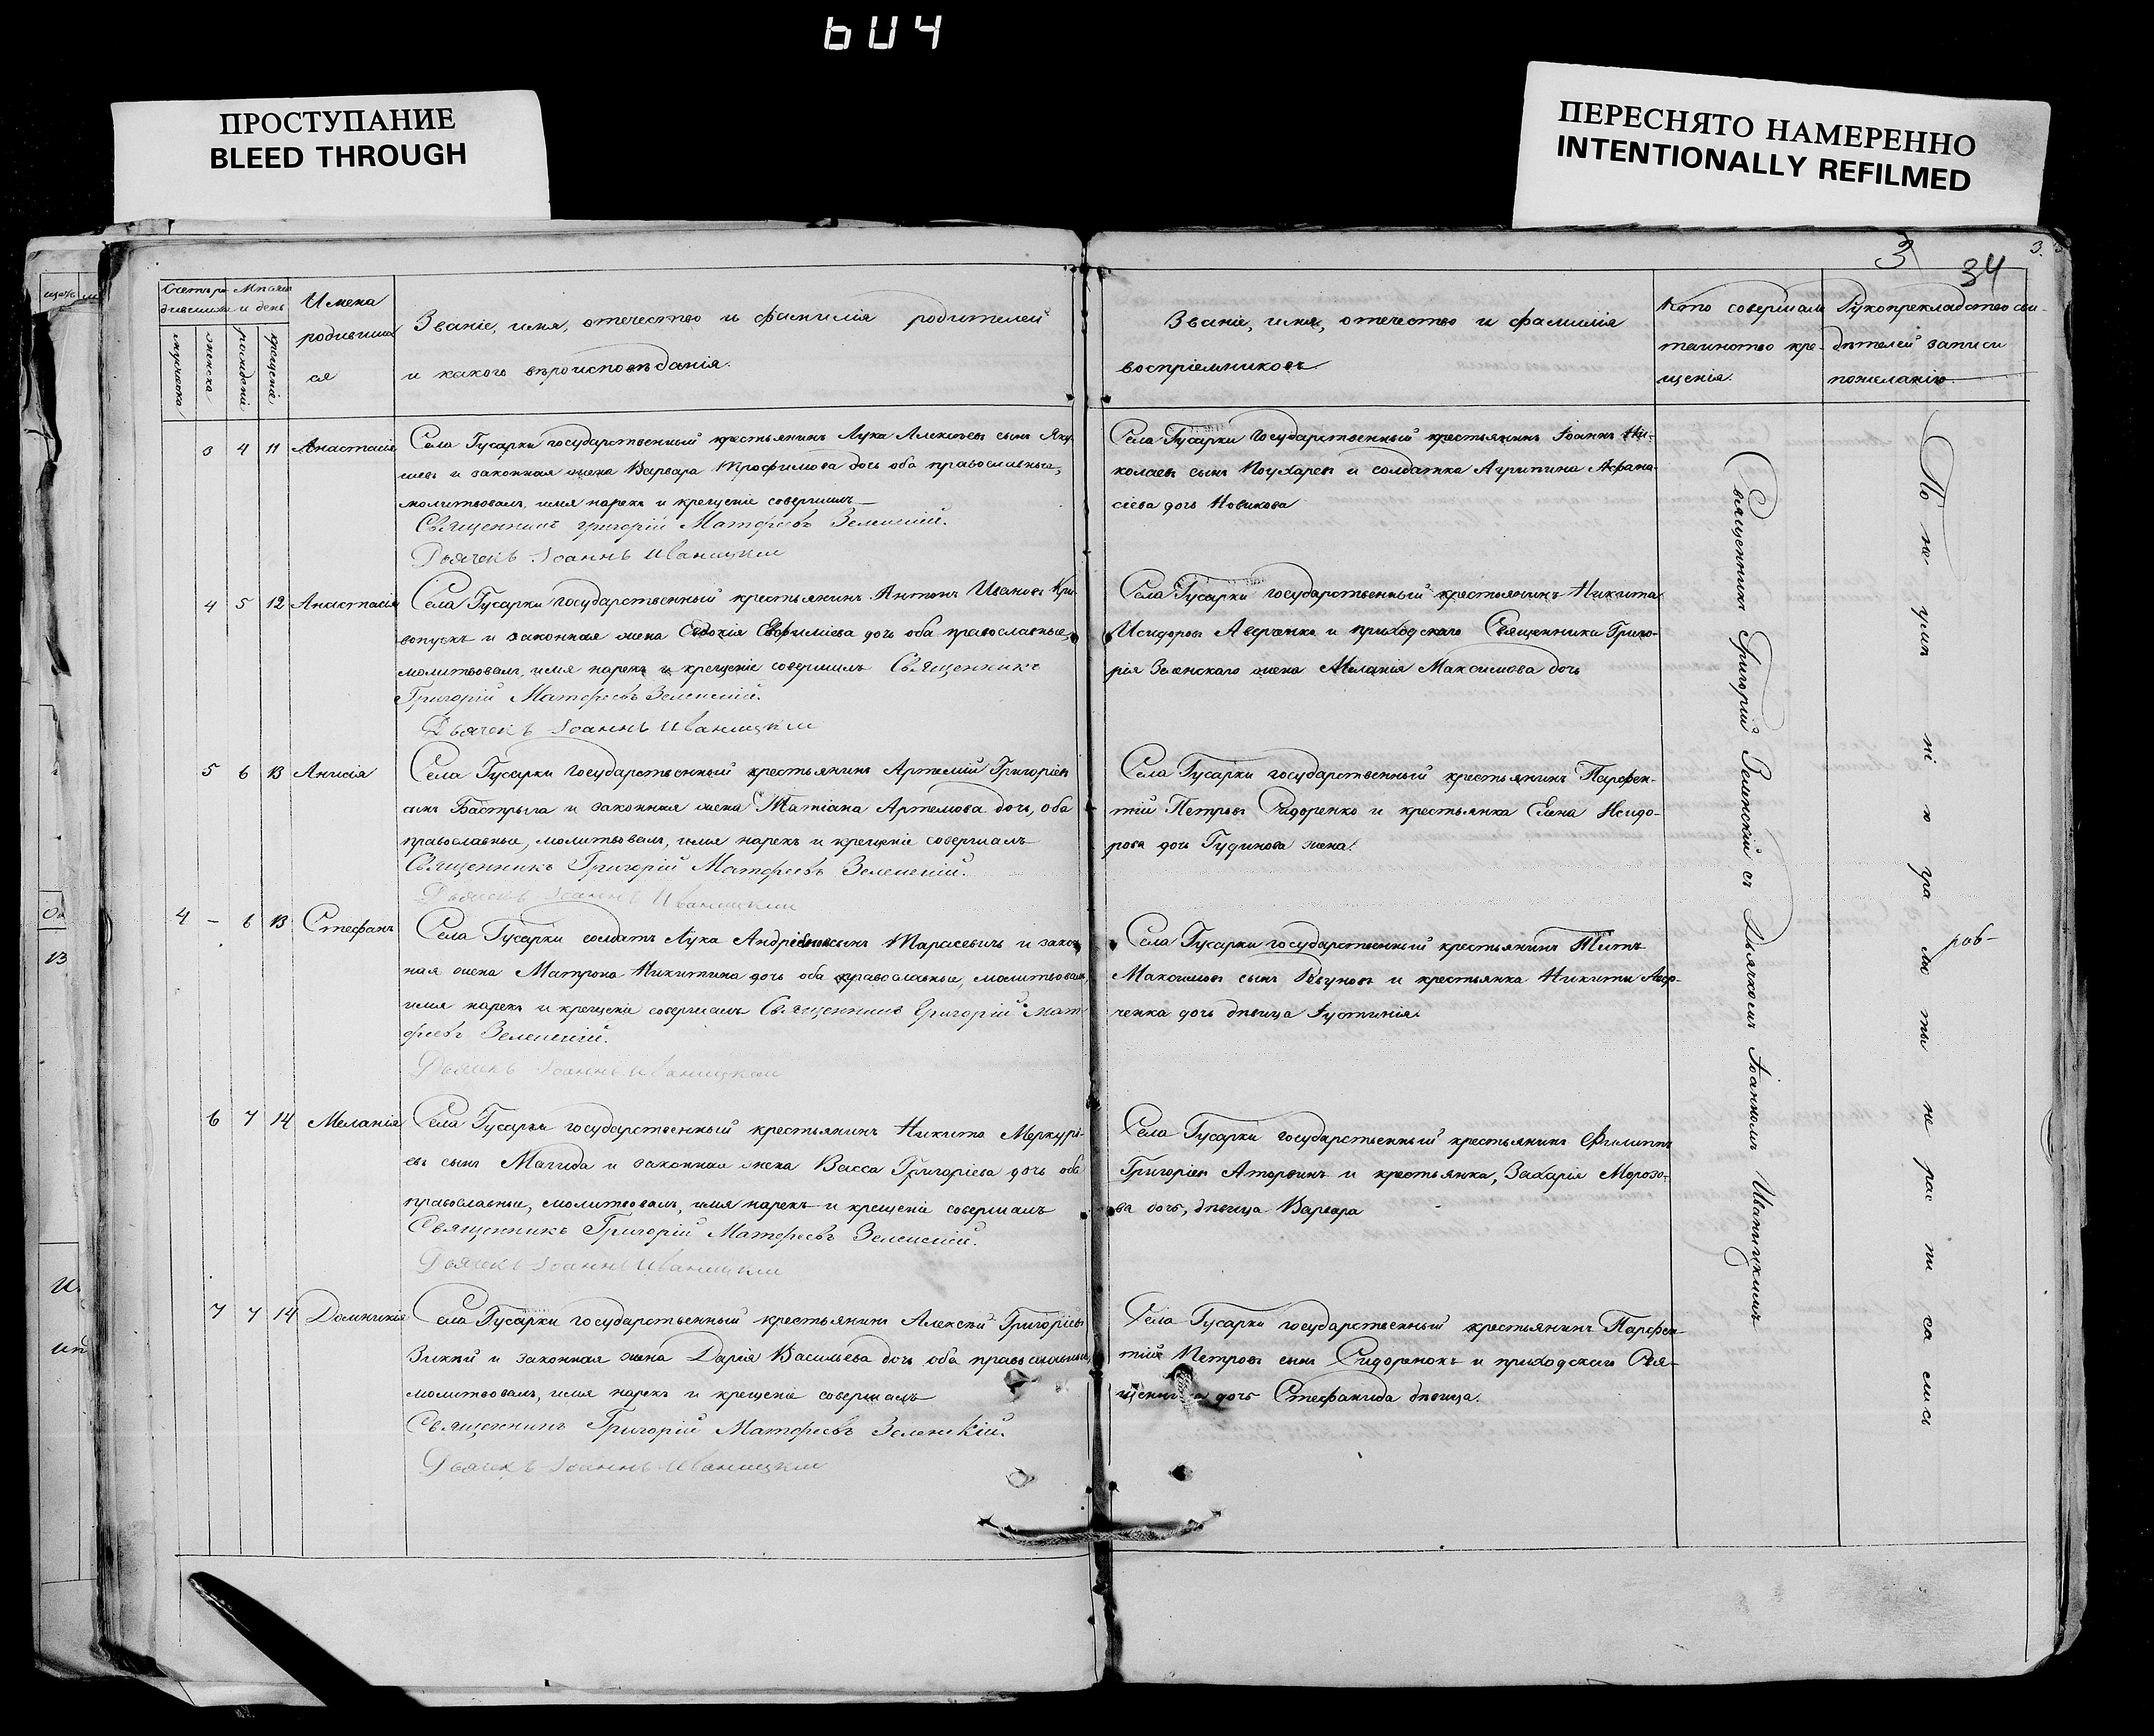 604
ПРОСТУПАНИЕ
BLEED THROUGH
ПЕРЕСНЯТО НАМЕРЕННО
INTENTIONALLY REFILMED
3
34
Счетъ ро- Мѣсяцъ
дившихся и день
мужеска
женска
рожденія
крещенія
Имена
родивших
ся
Званіе, имя, отечество и фамилія родителей
и какого вѣроисповѣданія.
Званіе, имя, отечество и фамилія
воспріемниковъ
Кто совершалъ
таинство кре-
щенія.
Рукоприкладство сви-
дѣтелей записи
по желанію
3 4 11 Анастасія
Села Гусарки государственный крестьянинъ Лука Алексѣевъ сынъ
и законная жена Варвара Трофимова дочь оба православные,
молитвовалъ, имя нарекъ и крещеніе совершалъ
Священникъ Григорій Матфеевъ Зеленскій.
Дьячекъ Іоаннъ Иваницкій
Села Гусарки государственный крестьянинъ Іоаннъ Ни-
колаевъ сынъ и солдатка Агрипина Афана-
сіева дочь Новикова
4 5 12 Анастасія
Села Гусарки государственный крестьянинъ Антонъ Ивановъ Кри-
вопускъ и законная жена Евдокія дочь оба православные,
молитвовалъ, имя нарекъ и крещеніе совершилъ Священникъ
Григорій Матфеевъ Зеленскій.
Дьячекъ Іоаннъ Иваницкій
Села Гусарки государственный крестьянинъ Никита
Исидоровъ Аверченко и приходскаго Священника Григо-
рія Зеленскаго жена Меланія Максимова дочь
5 6 13 Анисія
Села Гусарки государственный крестьянинъ Артемій Григоріевъ
сынъ Бастрыга и законная жена Татіана Артемова дочь, оба
православные, молитвовалъ, имя нарекъ и крещеніе совершалъ
Священникъ Григорій Матфеевъ Зеленскій.
Дьячекъ Іоаннъ Иваницкій
Села Гусарки государственный крестьянинъ Парфен-
тій Петровъ Сидоренко и крестьянка Елена Исидо-
рова дочь Гудинова жена.
4 – 6 13 Стефанъ
Села Гусарки солдатъ Лука Андреевъ сынъ Тарасевичъ и закон
ная жена Матрона Никитина дочь оба православные, молитвовалъ,
имя нарекъ и крещеніе совершалъ Священникъ Григорій Мат
феевъ Зеленскій.
Дьячекъ Іоаннъ Иваницкій
Села Гусарки государственный крестьянинъ Титъ
Максимовъ сынъ и крестьянка Никиты Авер-
ченка дочь дѣвица Іустинія.
6 7 14 Меланія
Села Гусарки государственный крестьянинъ Никита Меркурі-
евъ сынъ Магида и законная жена Васса Григоріева дочь оба
православные, молитвовалъ, имя нарекъ и крещеніе совершалъ
Священникъ Григорій Матфеевъ Зеленскій.
Дьячекъ Іоаннъ Иваницкій
Села Гусарки государственный крестьянинъ Филиппъ
Григоріевъ и крестьянка, Захарія Морозо-
ва дочь, дѣвица Варвара
7 7 14 Домникія
Села Гусарки государственный крестьянинъ Алексѣй Григоріевъ
и законная жена Дарія Васильева дочь оба православные,
молитвовалъ, имя нарекъ и крещеніе совершалъ
Священникъ Григорій Матфеевъ Зеленскій.
Дьячекъ Іоаннъ Иваницкій
Села Гусарки государственный крестьянинъ Парфен-
тій Петровъ сынъ Сидоренокъ и приходскаго Свя-
дочь Стефанида дѣвица.
Священникъ Григорій Зеленскій съ Дьячкомъ Іоанномъ Иваницкимъ
По не умѣ ні ю гра мо ты не рас пи са лись